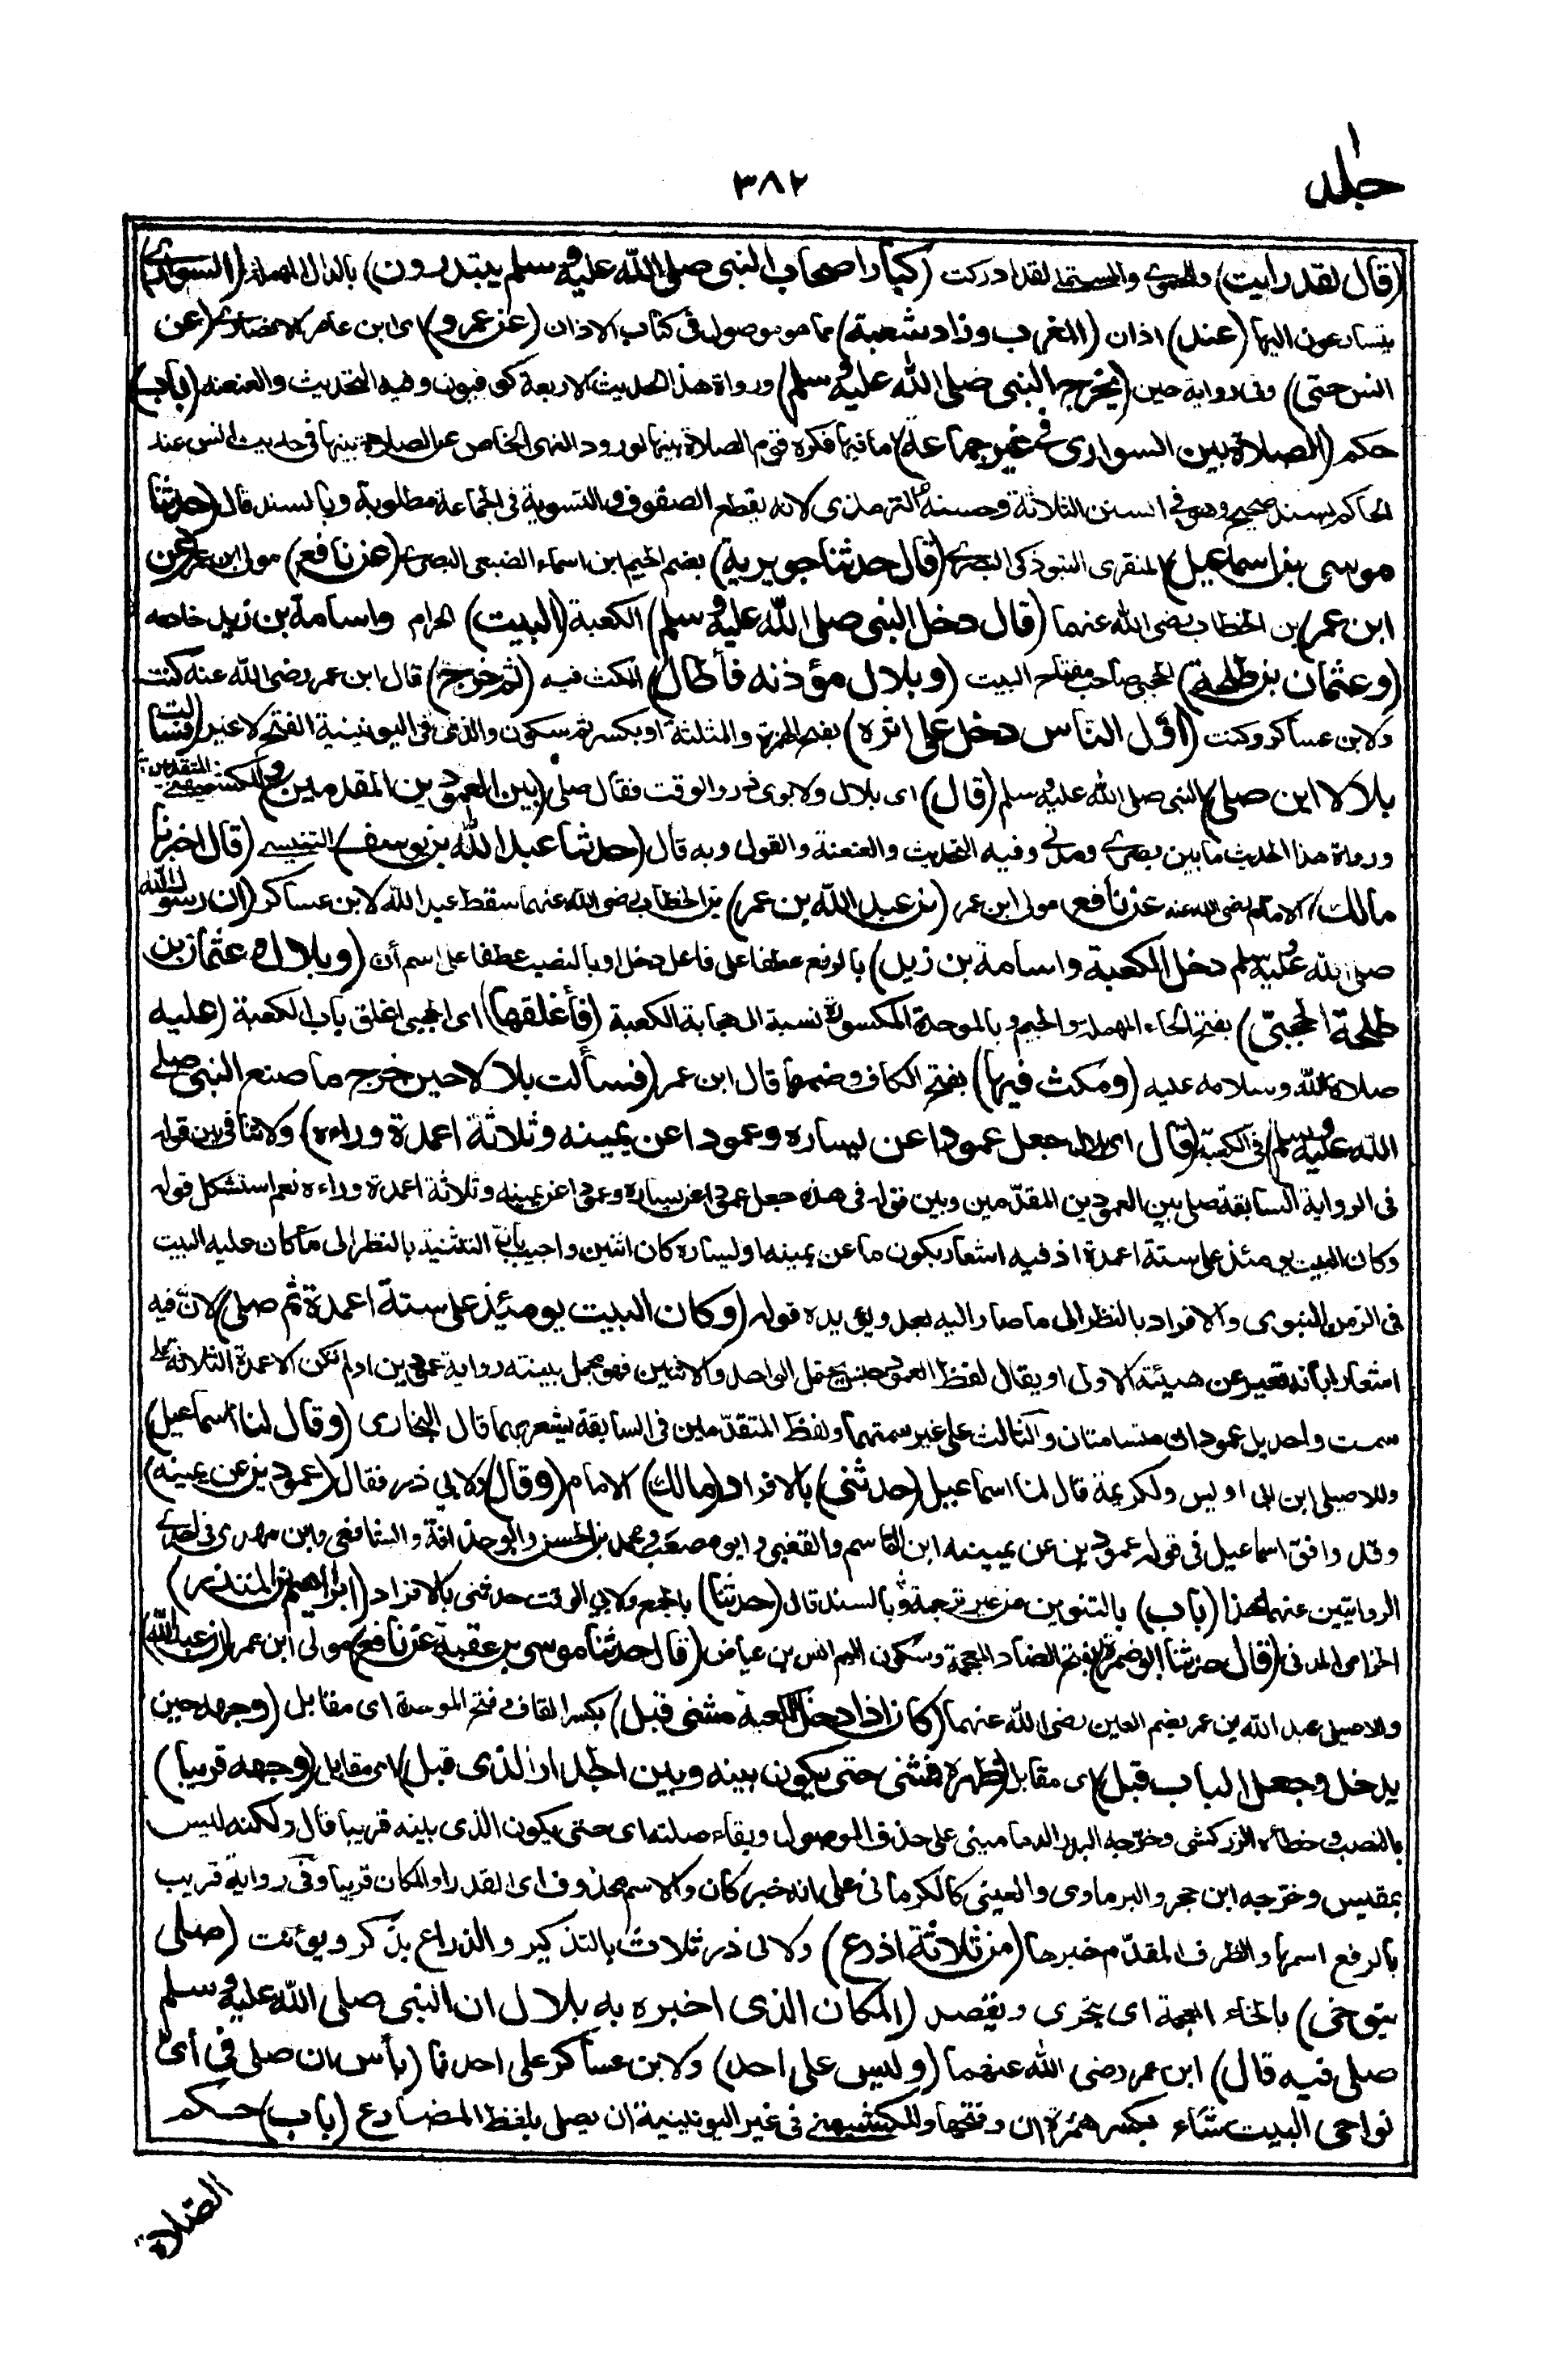 جلد ١
٣٨٢
(قال لقد رأيت) وللحموي والمستملي لقد ادركت (كبار اصحاب النبى صلى الله عليه وسلم يبتدرون) بالدال المهملة (السوارى)
يتسارعون اليها (عند) اذان (المغرب وزاد شعبة) مما هو موصول فى كتاب الاذان (عن عمرو) اى ابن عامر الانصارى (عن
انس حتى) وفى رواية حين (يخرج النبى صلى الله عليه وسلم) ورواة هذا الحديث الاربعة كوفيون وفيه التحديث والعنعنه (باب)
حكم (الصلاة بين السوارى فى غير جماعة) اما فيها فكره قوم الصلاة بينها لورود النهى الخاص عن الصلاة بينها فى حديث انس عند
الحاكم بسند صحيح وهو فى السنن الثلاثة وحسنه الترمذى لانه يقطع الصفوف والتسوية فى الجماعة مطلوبة وبالسند قال (حدثنا
موسى بن اسماعيل) المنقرى التبوذكى البصرى (قال حدثنا جويرية) بضم الجيم ابن اسماء الضبعى البصرى (عن نافع) مولى ابن عمر (عن
ابن عمر) بن الخطاب رضى الله عنهما (قال دخل النبى صلى الله عليه وسلم) الكعبة (البيت) الحرام واسامة بن زيد خادمه
(وعثمان بن طلحة) الحجبى صاحب مفتاح البيت (وبلال مؤذنه فأطال) المكث فيه (ثم خرج) قال ابن عمر رضى الله عنه كنت
ولابن عساكر وكنت (اوّل الناس دخل على اثره) بفتح الهمزة والمثلثة او بكسر ثم سكون والذى فى اليونينية الفتح لا غير (فسألت
بلالا اين صلى) النبى صلى الله عليه وسلم (قال) اى بلال ولابوى ذر والوقت فقال صلى (بين العمودين المقدمين) وللكشميهنى المتقدمين
ورواة هذا الحديث ما بين بصرى ومدنى وفيه التحديث والعنعنة والقول وبه قال (حدثنا عبد الله بن يوسف) التنيسى (قال اخبرنا
مالك) الامام رضى الله عنه عن نافع مولى ابن عمر (عن عبد الله بن عمر) بن الخطاب رضى الله عنهما سقط عبد الله لابن عساكر (ان رسول الله
صلى الله عليه وسلم دخل الكعبة واسامة بن زيد) بالرفع عطفا على فاعل دخل او بالنصب عطفا على اسم أن (وبلال وعثمان بن
طلحة الحجبىّ) بفتح الحاء المهملة والجيم وبالموحدة المكسورة نسبة الى حجابة الكعبة (فأغلقها) اى الحجبى اغلق باب الكعبة (عليه
صلاة الله وسلامه عليه (ومكث فيها) بفتح الكاف وضمها قال ابن عمر (فسألت بلالا حين خرج ما صنع النبى صلى
الله عليه وسلم) فى الكعبة (قال) اى بلال جعل عمودا عن يساره وعمودا عن يمينه وثلاثة اعمدة وراءه) ولا تنافى بين قوله
فى الرواية السابقة صلى بين العمودين المقدّمين وبين قوله فى هذه جعل عمودا عن يساره وعمودا عن يمينه وثلاثة اعمدة وراءه نعم استشكل قوله
وكان البيت يومئذ على ستة اعمدة اذ فيه اشعار بكون ما عن يمينه او يساره كان اثنين واجيب بانّ التثنية بالنظر الى ما كان عليه البيت
فى الزمن النبوى والافراد بالنظر الى ما صار اليه بعد ويؤيده قوله (وكان البيت يومئذ على ستة اعمدة ثم صلى) لانّ فيه
اشعارا بأنه تغير عن هيئته الاولى او يقال لفظ العمود جنس يحتمل الواحد والاثنين فهو مجمل بينته رواية عمودين او لم تكن الاعمدة الثلاثة على
سمت واحد بل عمودان متسامتان والثالث على غير سمتهما ولفظ المتقدّمين فى السابقة يشعر بهما قال البخارى (وقال لنا اسماعيل)
وللاصيلى ابن ابى اويس ولكريمة قال لنا اسماعيل (حدثنى) بالافراد (مالك) الامام (وقال) ولابي ذر فقال (عمودين عن يمينه)
وقد وافق اسماعيل فى قوله عمودين عن يمينه ابن القاسم والقعنبى وابو مصعب ومحمد بن الحسن وابو حذافة والشافعى وابن مهدى فى احدى
الروايتين عنهما هذا (باب) بالتنوين من غير ترجمة وبالسند قال (حدثنا) بالجمع ولابي الوقت حدثنى بالافراد (ابراهيم بن المنذر)
الحزامى المدنى (قال حدثنا ابو ضمرة) بفتح الضاد المعجمة وسكون الميم انس بن عياض (قال حدثنا موسى بن عقبة عن نافع) مولى ابن عمر (ان عبد الله)
وللاصيلى عبد الله بن عمر بضم العين رضى الله عنهما (كان اذا دخل الكعبة مشى قبل) بكسر القاف وفتح الموحدة اى مقابل (وجهه حين
يدخل وجعل الباب قبل) اى مقابل (ظهره فمشى حتى يكون بينه وبين الجدار الذى قبل) اى مقابل (وجهه قريبا)
بالنصب وخطأه الزركشى وخرّجه البدر الدمامينى على حذف الموصول وبقاء صلته اى حتى يكون الذى بينه قريبا قال ولكنه ليس
بمقيس وخرّجه ابن حجر والبرماوى والعينى كالكرمانى على انه خبر كان والاسم محذوف اى القدر او المكان قريبا وفى رواية قريب
بالرفع اسمها والظرف المقدّم خبرها (من ثلاثة اذرع) ولابى ذر ثلاث بالتذكير والذراع يذكر ويؤنث (صلى
يتوخى) بالخاء المعجمة اى يتحرى ويقصد (المكان الذى اخبره به بلال ان النبى صلى الله عليه وسلم
صلى فيه قال) ابن عمر رضى الله عنهما (وليس على احد) ولابن عساكر على احدنا (بأس ان صلى فى أىّ
نواحى البيت شاء بكسر همزة ان وفتحها وللكشميهنى فى غير اليونينية ان يصلى بلفظ المضارع (باب) حكم
الصلاة